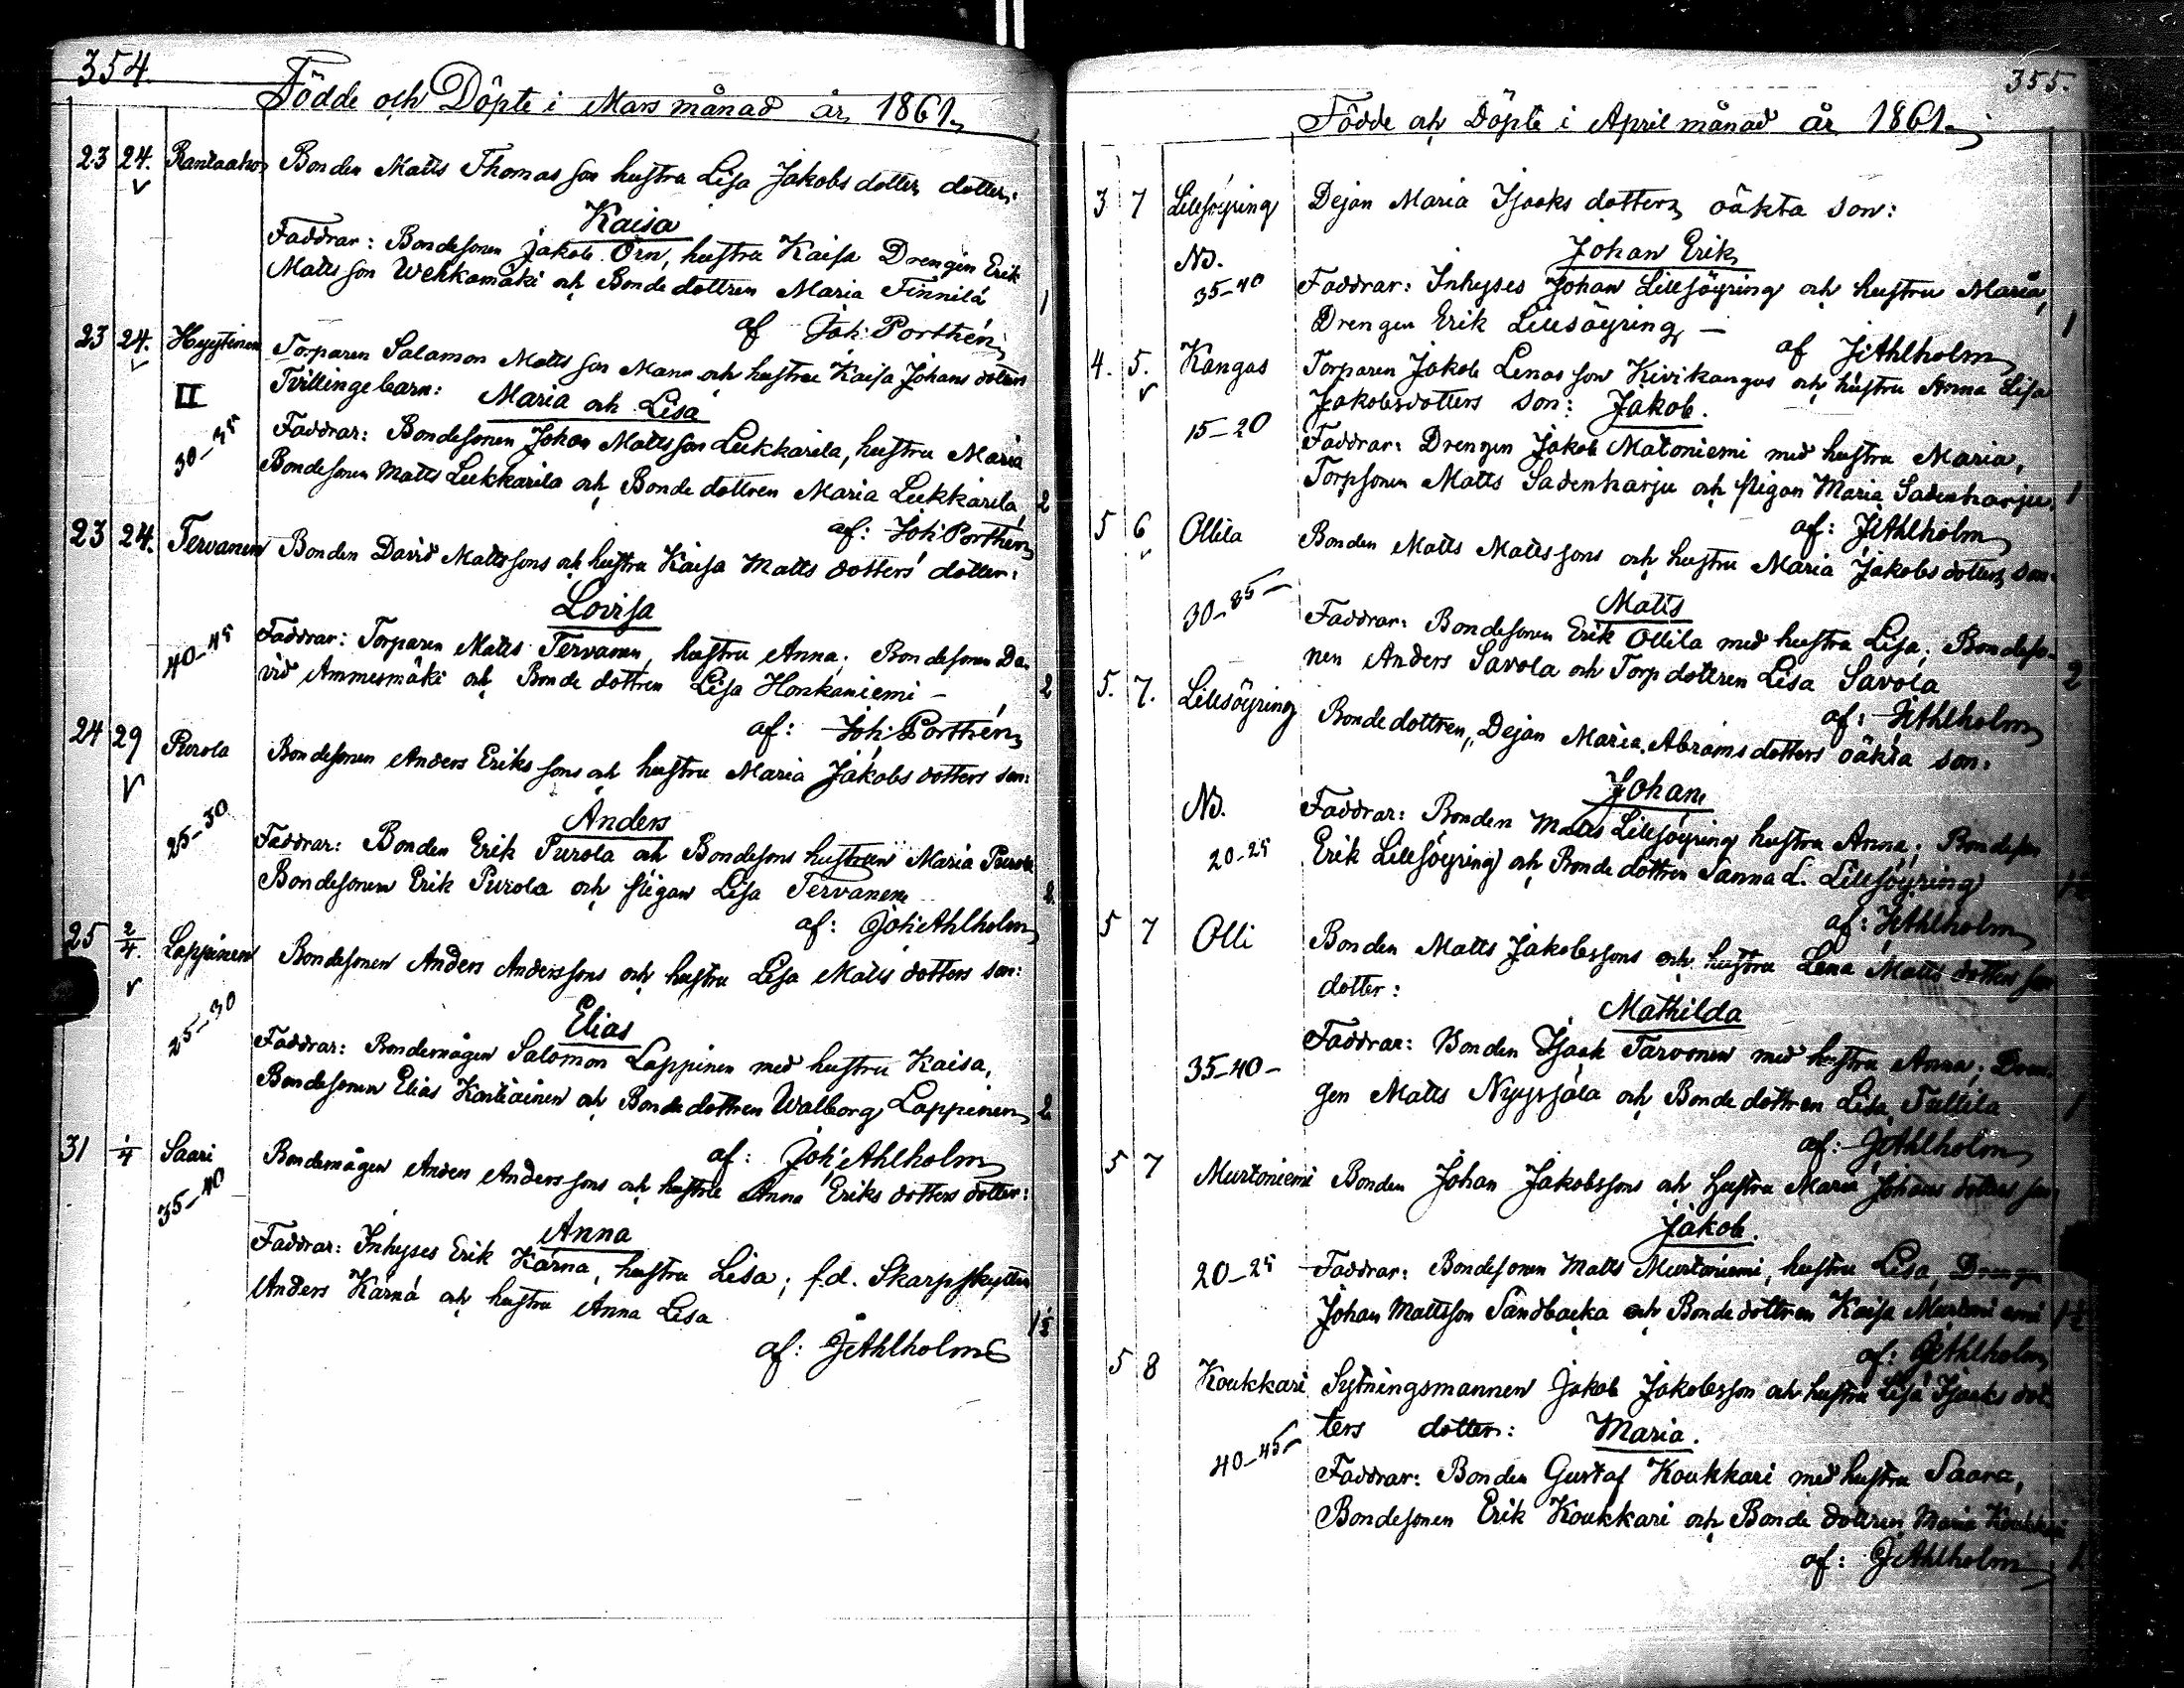 354.
Födde och Döpte i Mars månad år 1861.
23 24. Rantaaho Bonden Matts Thomas son hustru Lisa Jakobs dotters dotter:
Kaisa
Faddrar: Bondesonen Jakob Örn, hustru Kaisa Drengen Erik
Matts son Wehkamäki och Bonde dottren Maria Finnilä 1
af Joh: Porthén
23 24. Hyytinen Torparen Salamon Matts son Mann och hustru Kaisa Johans dotters
II Tvillinge barn: Maria och Lisa
30-35 Faddrar: Bondesonen Johan Mattsson Lukkarila, hustru Maria
Bondesonen Matts Lukkarila och Bonde dottren Maria Lukkarila 2
af: Joh: Porthén
23 24. Tervanen Bonden David Mattssons och hustru Kaisa Matts dotters dotter:
Lovisa
40-45 Faddrar: Torparen Matts Tervanen, hustru Anna; Bondesonen Da-
vid Ammesmäki och Bonde dottren Lisa Honkaniemi - 2
af: Joh: Porthén
24 29 Purola Bondesonen Anders Eriks sons och hustru Maria Jakobs dotters son:
Anders
25-30 Faddrar: Bonden Erik Purola och Bondesons hustrun Maria Purola
Bondesonen Erik Purola och pigan Lisa Tervanen 2
af: Joh: Ahlholm
25 2/4. Lappinen Bondesonen Anders Anderssons och hustru Lisa Matts dotters son:
Elias
25-30 Faddrar: Bondemågen Salomon Lappinen med hustru Kaisa,
Bondesonen Elias Karttiainen och Bonde dottren Walborg Lappinen 2
af: Joh: Ahlholm
31 1/4 Saari Bondemågen Anders Anderssons och hustru Anna Eriks dotters dotter:
35-40 Anna
Faddrar: Inhyses Erik Kärnä, hustru Lisa; f.d. Skarpskytten
Anders Kärnä och hustru Anna Lisa 1½
af: J: Ahlholm
355.
Födde och Döpte i April månad år 1861.
3 7 Lillsöyring Dejan Maria Isaaks dotters oäkta son:
Johan Erik
Nd.
35-40 Faddrar: Inhyses Johan Lillsöyring och hustru Maria,
Drengen Erik Lillsöyring - 1
af J: Ahlholm
4. 5. Kangas Torparen Jakob Lenas son Kivikangas och hustru Anna Lisa
Jakobsdotters son: Jakob.
15-20 Faddrar: Drengen Jakob Matoniemi med hustru Maria,
Torpsonen Matts Sadenharju och pigan Maria Sadenharju. 1
af: J: Ahlholm
5 6 Ollila Bonden Matts Mattssons och hustru Maria Jakobs dotters son:
Matts
30-35- Faddrar: Bondesonen Erik Ollila med hustru Lisa; Bondeso-
nen Anders Savola och Torp dottren Lisa Savola 2
af: J: Ahlholm
5. 7. Lillsöyring Bonde dottren, Dejan Maria Abrams dotters oäkta son:
Johan
Nd.
20-25 Faddrar: Bonden Matts Lillsöyring hustru Anna; Bondeson
Erik Lillsöyring och Bonde dottren Sanna L. Lillsöyring 1½
af: J: Ahlholm
5 7 Olli Bonden Matts Jakobssons och hustru Lena Matts dotters
dotter:
Mathilda
35-40- Faddrar: Bonden Isaak Tarvonen med hustru Anna; Dren-
gen Matts Nyyssölä och Bonde dottren Lisa Tullila 1
af: J: Ahlholm
5 7 Murtoniemi Bonden Johan Jakobssons och hustru Maria Johans dotters son
Jakob.
20-25 Faddrar: Bondesonen Matts Murtoniemi, hustru Lisa, Drengen
Johan Mattsson Sandbacka och Bonde dottren Kaisa Murtoniemi 1½
af: J: Ahlholm
5 8 Koukkari Sytningsmannen Jakob Jakobsson och hustru Lisa Isaaks dot-
ters dotter: Maria.
40-45- Faddrar: Bonden Gustaf Koukkari med hustru Saara,
Bondesonen Erik Koukkari och Bonde dottren Maria Koukkari
af: J: Ahlholm